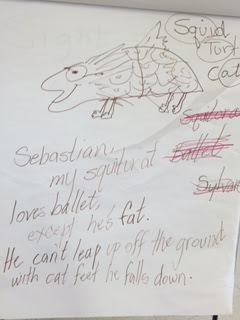 Squid
Turt
Cat
Ballet
Sylvan
Sebastian,
my squiturat
loves ballet,
except he's fat.
He can't leap up off the ground
with cat feet he falls down.